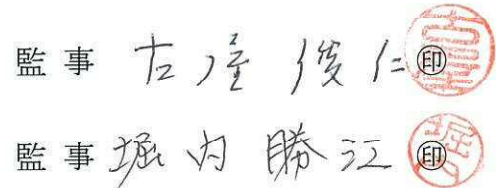 監事 古屋俊仁 ㊞
監事 堀内勝江 ㊞